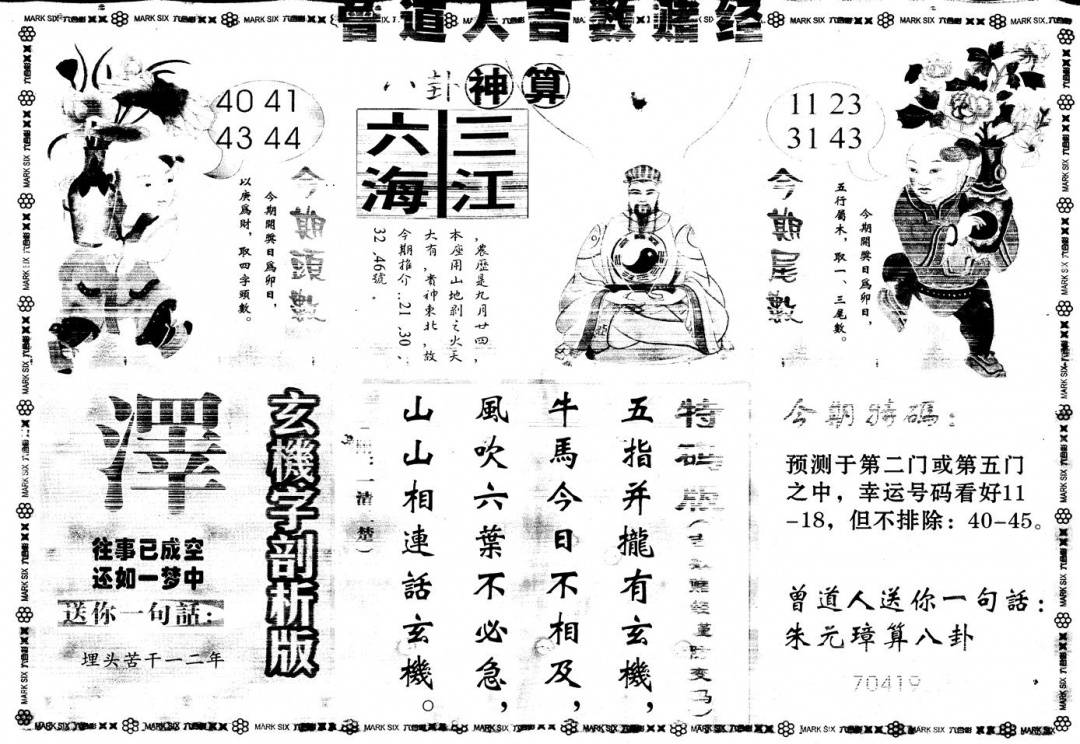 曾道人吉數賭经
MARK SIX 六合彩
八卦神算
40 41
43 44
今期頭數
今期開獎日爲卯日，
以庚爲財，取四字頭數。
三江
六海
，農歷是九月廿四，
本座用山地剥之火天
大有，貴神東北，故
今期推介：21．30．
32．46號。
11 23
31 43
今期尾數
今期開獎日爲卯日，
五行屬木，取一、三尾數。
澤
往事已成空
还如一梦中
送你一句話：
埋头苦干一二年
玄機字剖析版
五指并攏有玄機，
牛馬今日不相及，
風吹六葉不必急，
山山相連話玄機。
一清二楚）
今期特碼：
预测于第二门或第五门
之中，幸运号码看好11
-18，但不排除：40-45。
曾道人送你一句話：
朱元璋算八卦
70419